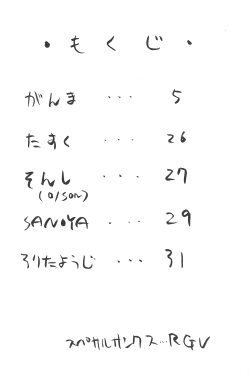 ・もくじ・
がんま ... 5
たすく ... 26
そんし ... 27
(o/son)
SANOYA ... 29
ろりたようじ ... 31
スペカルサンクス...RGV